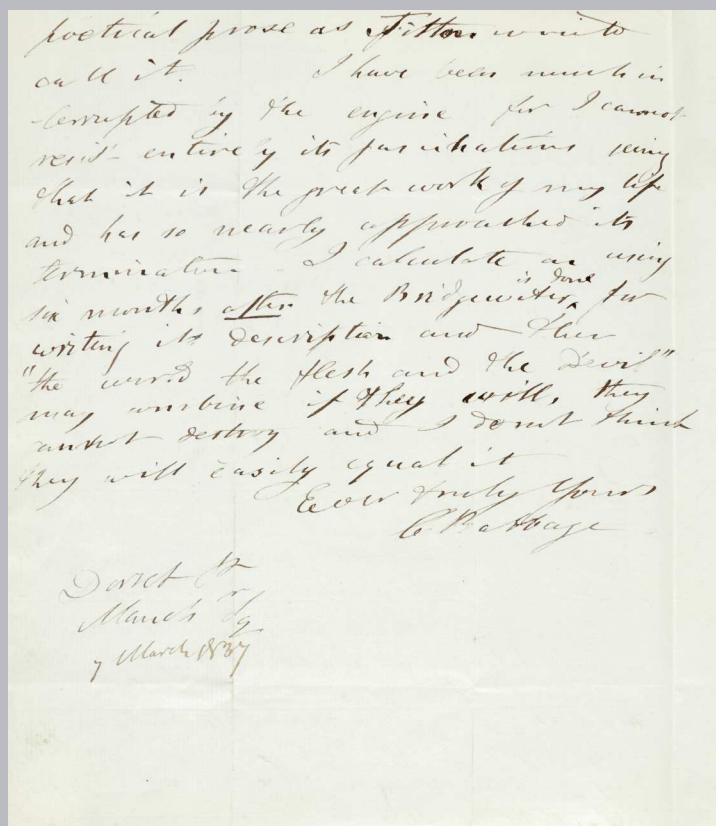 poetical prose as Fitton wont to
call it. I have been much in
-terrupted by the engine for I cannot
resist entirely its fascinations seeing
that it is the great work of my life
and has so nearly approached its
termination I calculate on using
six months after the Bridgewater is done for
writing its description and then
"the world the flesh and the Devil"
may combine if they will, they
cannot destroy and I do not think
they will easily equal it
Ever truly Yours
C Babbage
Dorset St
Manch Sq
7 March 1837